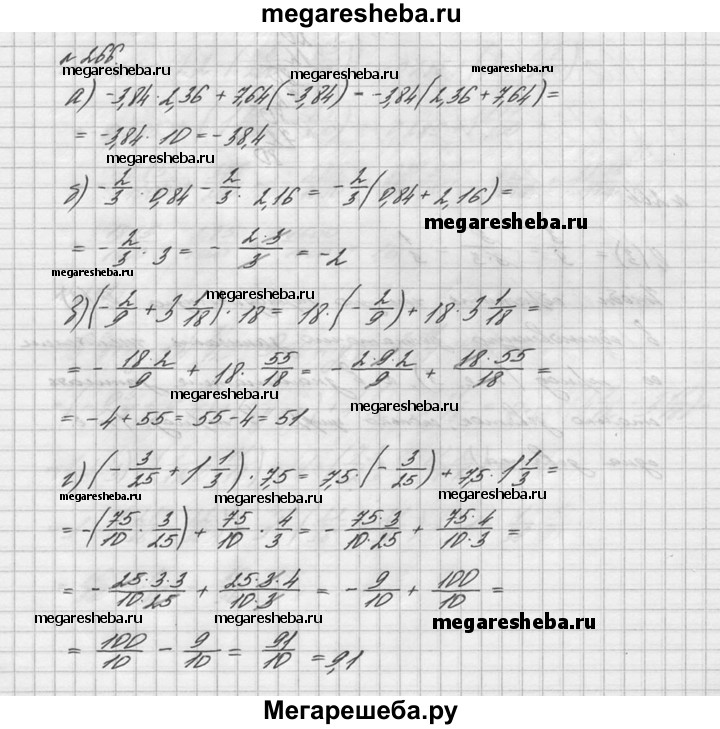 megaresheba.ru
№ 266.
megaresheba.ru megaresheba.ru megaresheba.ru
а) -3,84 · 2,36 + 7,64(-3,84) = -3,84(2,36 + 7,64) =
= -3,84 · 10 = -38,4
megaresheba.ru megaresheba.ru
б) -2/3 · 0,84 - 2/3 · 2,16 = -2/3(0,84 + 2,16) =
megaresheba.ru megaresheba.ru
= -2/3 · 3 = -2·3/3 = -2
megaresheba.ru
в) (-2/9 + 3 1/18) · 18 = 18 · (-2/9) + 18 · 3 1/18 =
= -18·2/9 + 18 · 55/18 = -2·9·2/9 + 18·55/18 =
megaresheba.ru megaresheba.ru
= -4 + 55 = 55 - 4 = 51
megaresheba.ru
г) (-3/25 + 1 1/3) · 7,5 = 7,5 · (-3/25) + 7,5 · 1 1/3 =
megaresheba.ru megaresheba.ru megaresheba.ru
= -(75/10 · 3/25) + 75/10 · 4/3 = -75·3/10·25 + 75·4/10·3 =
= -25·3·3/10·25 + 25·3·4/10·3 = -9/10 + 100/10 =
megaresheba.ru megaresheba.ru megaresheba.ru
= 100/10 - 9/10 = 91/10 = 9,1
Мегарешеба.ру